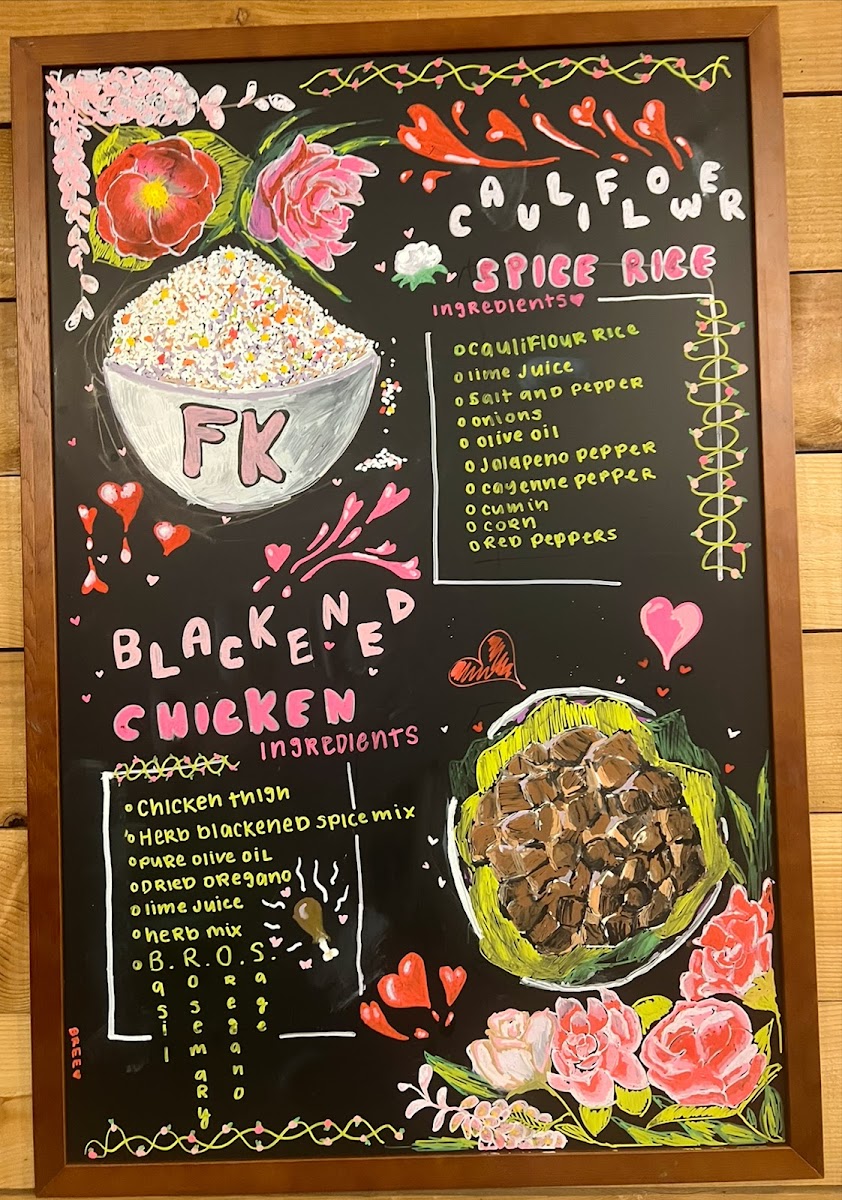 CAULIFLOWER
SPICE RICE
INGREDIENTS
cauliflour Rice
lime juice
salt and pepper
onions
olive oil
Jalapeno pepper
cayenne pepper
cumin
corn
Red peppers
FK
BLACKENED
CHICKEN
INGREDIENTS
chicken thigh
Herb blackened spice mix
pure olive oil
Dried oregano
lime juice
herb mix
B.R.O.S.
Basil
Rosemary
Oregano
Sage
BREE